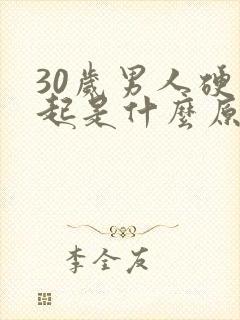 30歲男人硬
起是什麼原
李全友